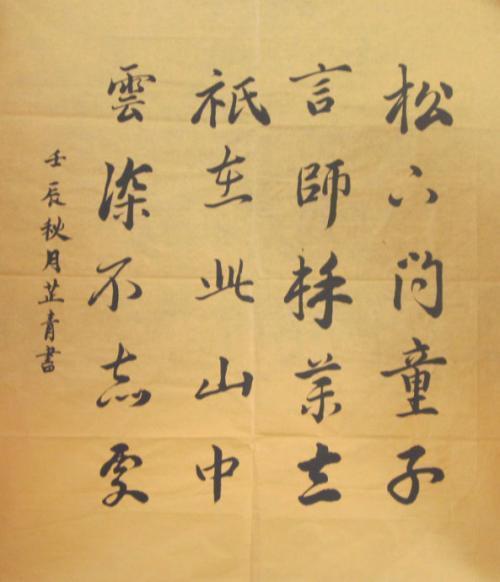 松下問童子
言師採藥去
祇在此山中
雲深不知處
壬辰秋月芷青書